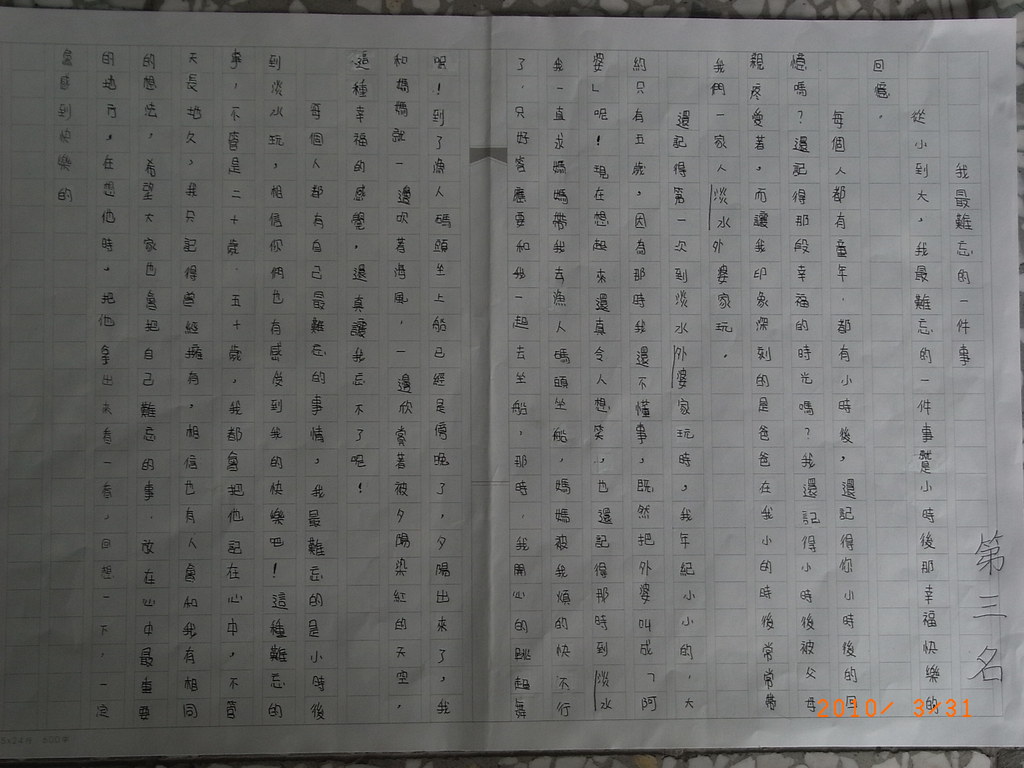 我最難忘的一件事
第三名
從小到大，我最難忘的一件事就是小時後那幸福快樂的
回憶。
每個人都有童年，都有小時後，還記得你小時後的回
憶嗎？還記得那段幸福的時光嗎？我還記得小時後被父母
親疼愛著，而讓我印象深刻的是爸爸在我小的時後常常帶
我們一家人淡水外婆家玩。
還記得第一次到淡水外婆家玩時，我年紀小小的，大
約只有五歲，因為那時我還不懂事，既然把外婆叫成「阿
婆」呢！現在想起來還真令人想笑，也還記得那時到淡水
我一直求媽媽帶我去漁人碼頭坐船，媽媽被我煩的快不行
了，只好答應要和我一起去坐船，那時，我開心的跳起舞
呢！到了漁人碼頭坐上船已經是傍晚了，夕陽出來了，我
和媽媽就一邊吹著海風，一邊欣賞著被夕陽染紅的天空，
這種幸福的感覺，還真讓我忘不了呢！
每個人都有自己最難忘的事情，我最難忘的是小時後
到淡水玩，相信你們也有感受到我的快樂吧！這種難忘的
事，不管是二十歲、五十歲，我都會把他記在心中，不管
天長地久，我只記得曾經擁有，相信也有人會和我有相同
的想法，希望大家也會把自己難忘的事，放在心中最重要
的地方，在想他時，把他拿出來看一看，回想一下，一定
會感到快樂的
2010/ 3/31